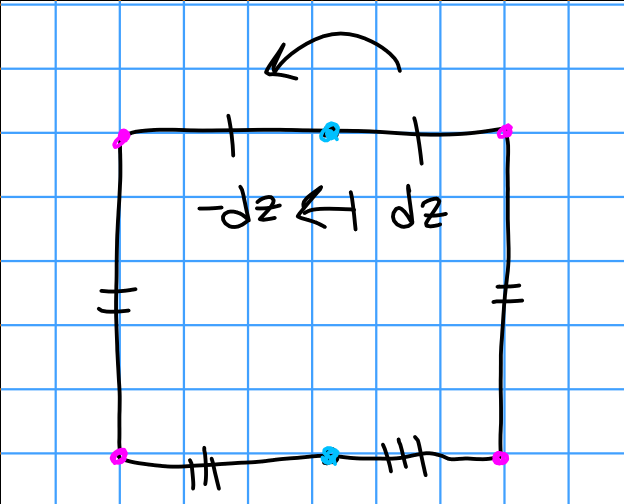 -dz ↤ dz